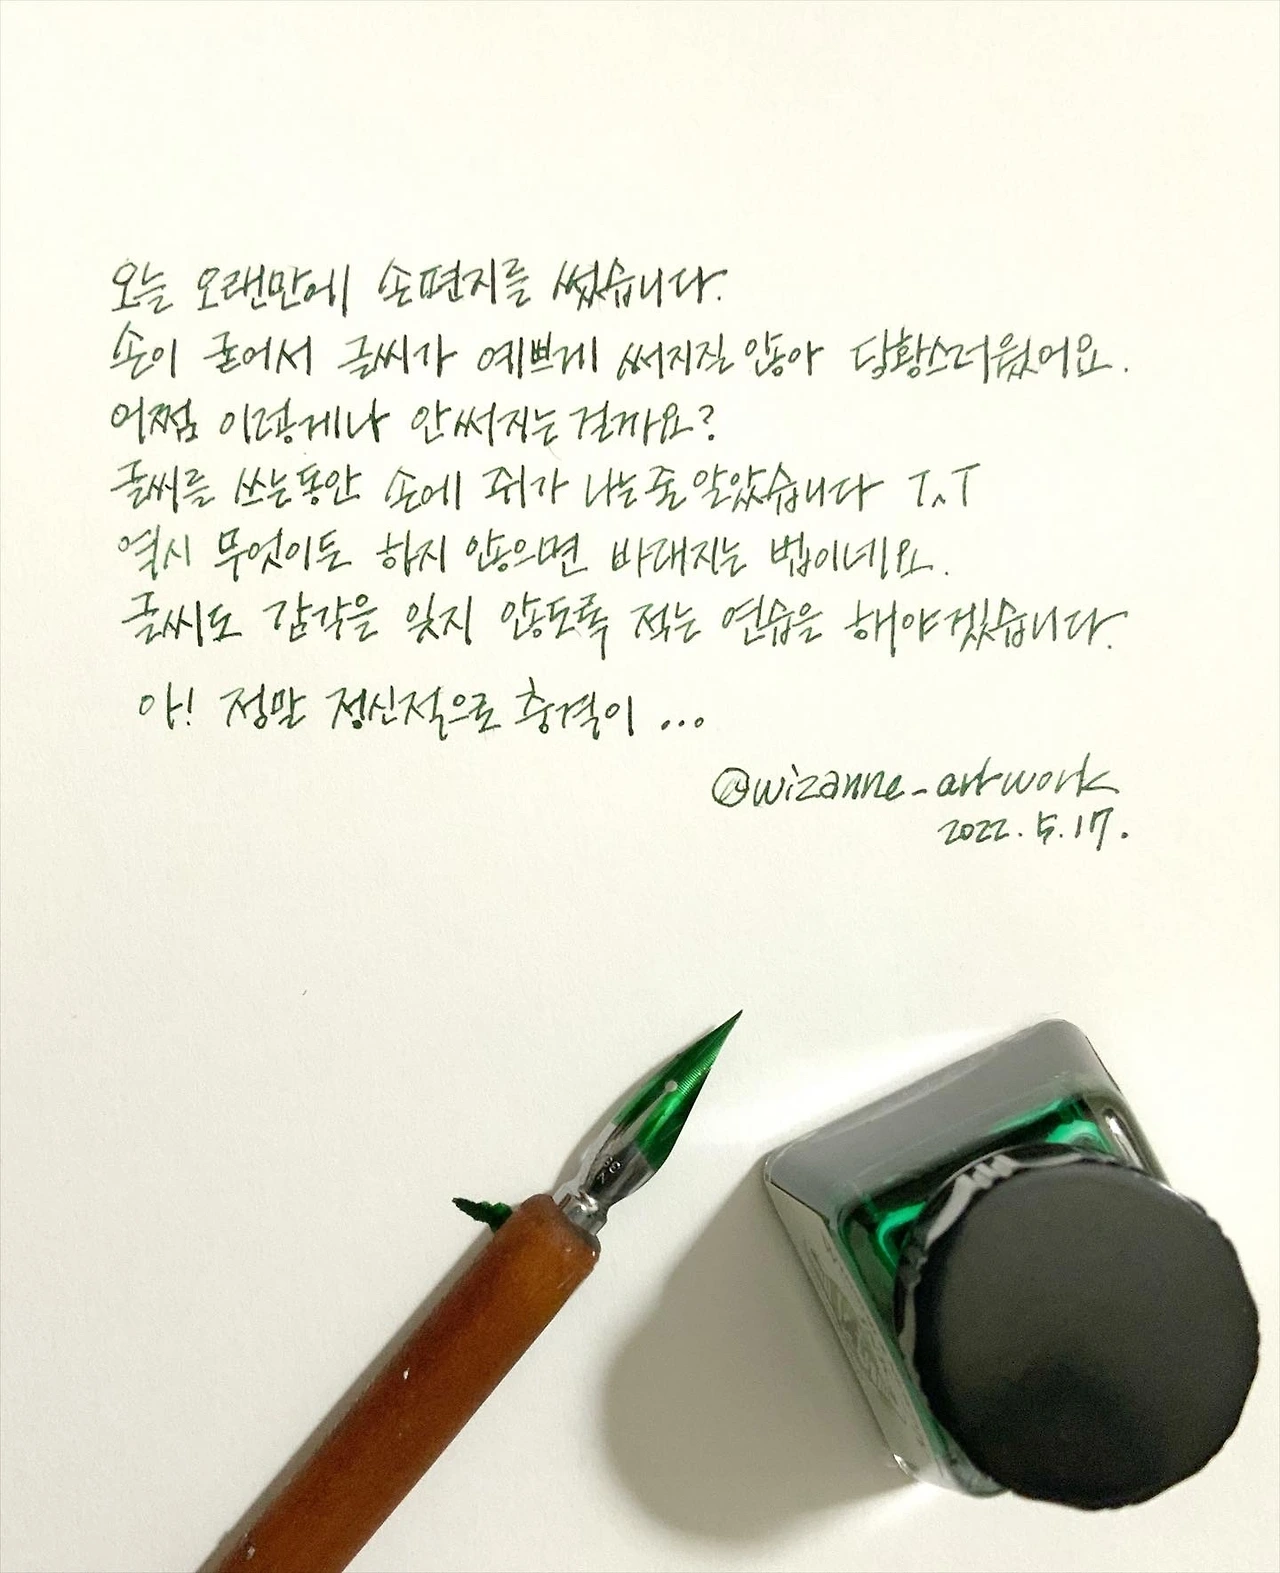 오늘 오랜만에 손편지를 썼습니다.
손이 굳어서 글씨가 예쁘게 써지질 않아 당황스러웠어요.
어쩜 이렇게나 안써지는걸까요?
글씨를 쓰는동안 손에 쥐가 나는줄알았습니다 T.T
역시 무엇이든 하지 않으면 바래지는 법이네요.
글씨도 감각을 잊지 않도록 적는 연습을 해야겠습니다.
아! 정말 정신적으로 충격이 ...
@wizanne_artwork
2022. 5. 17.